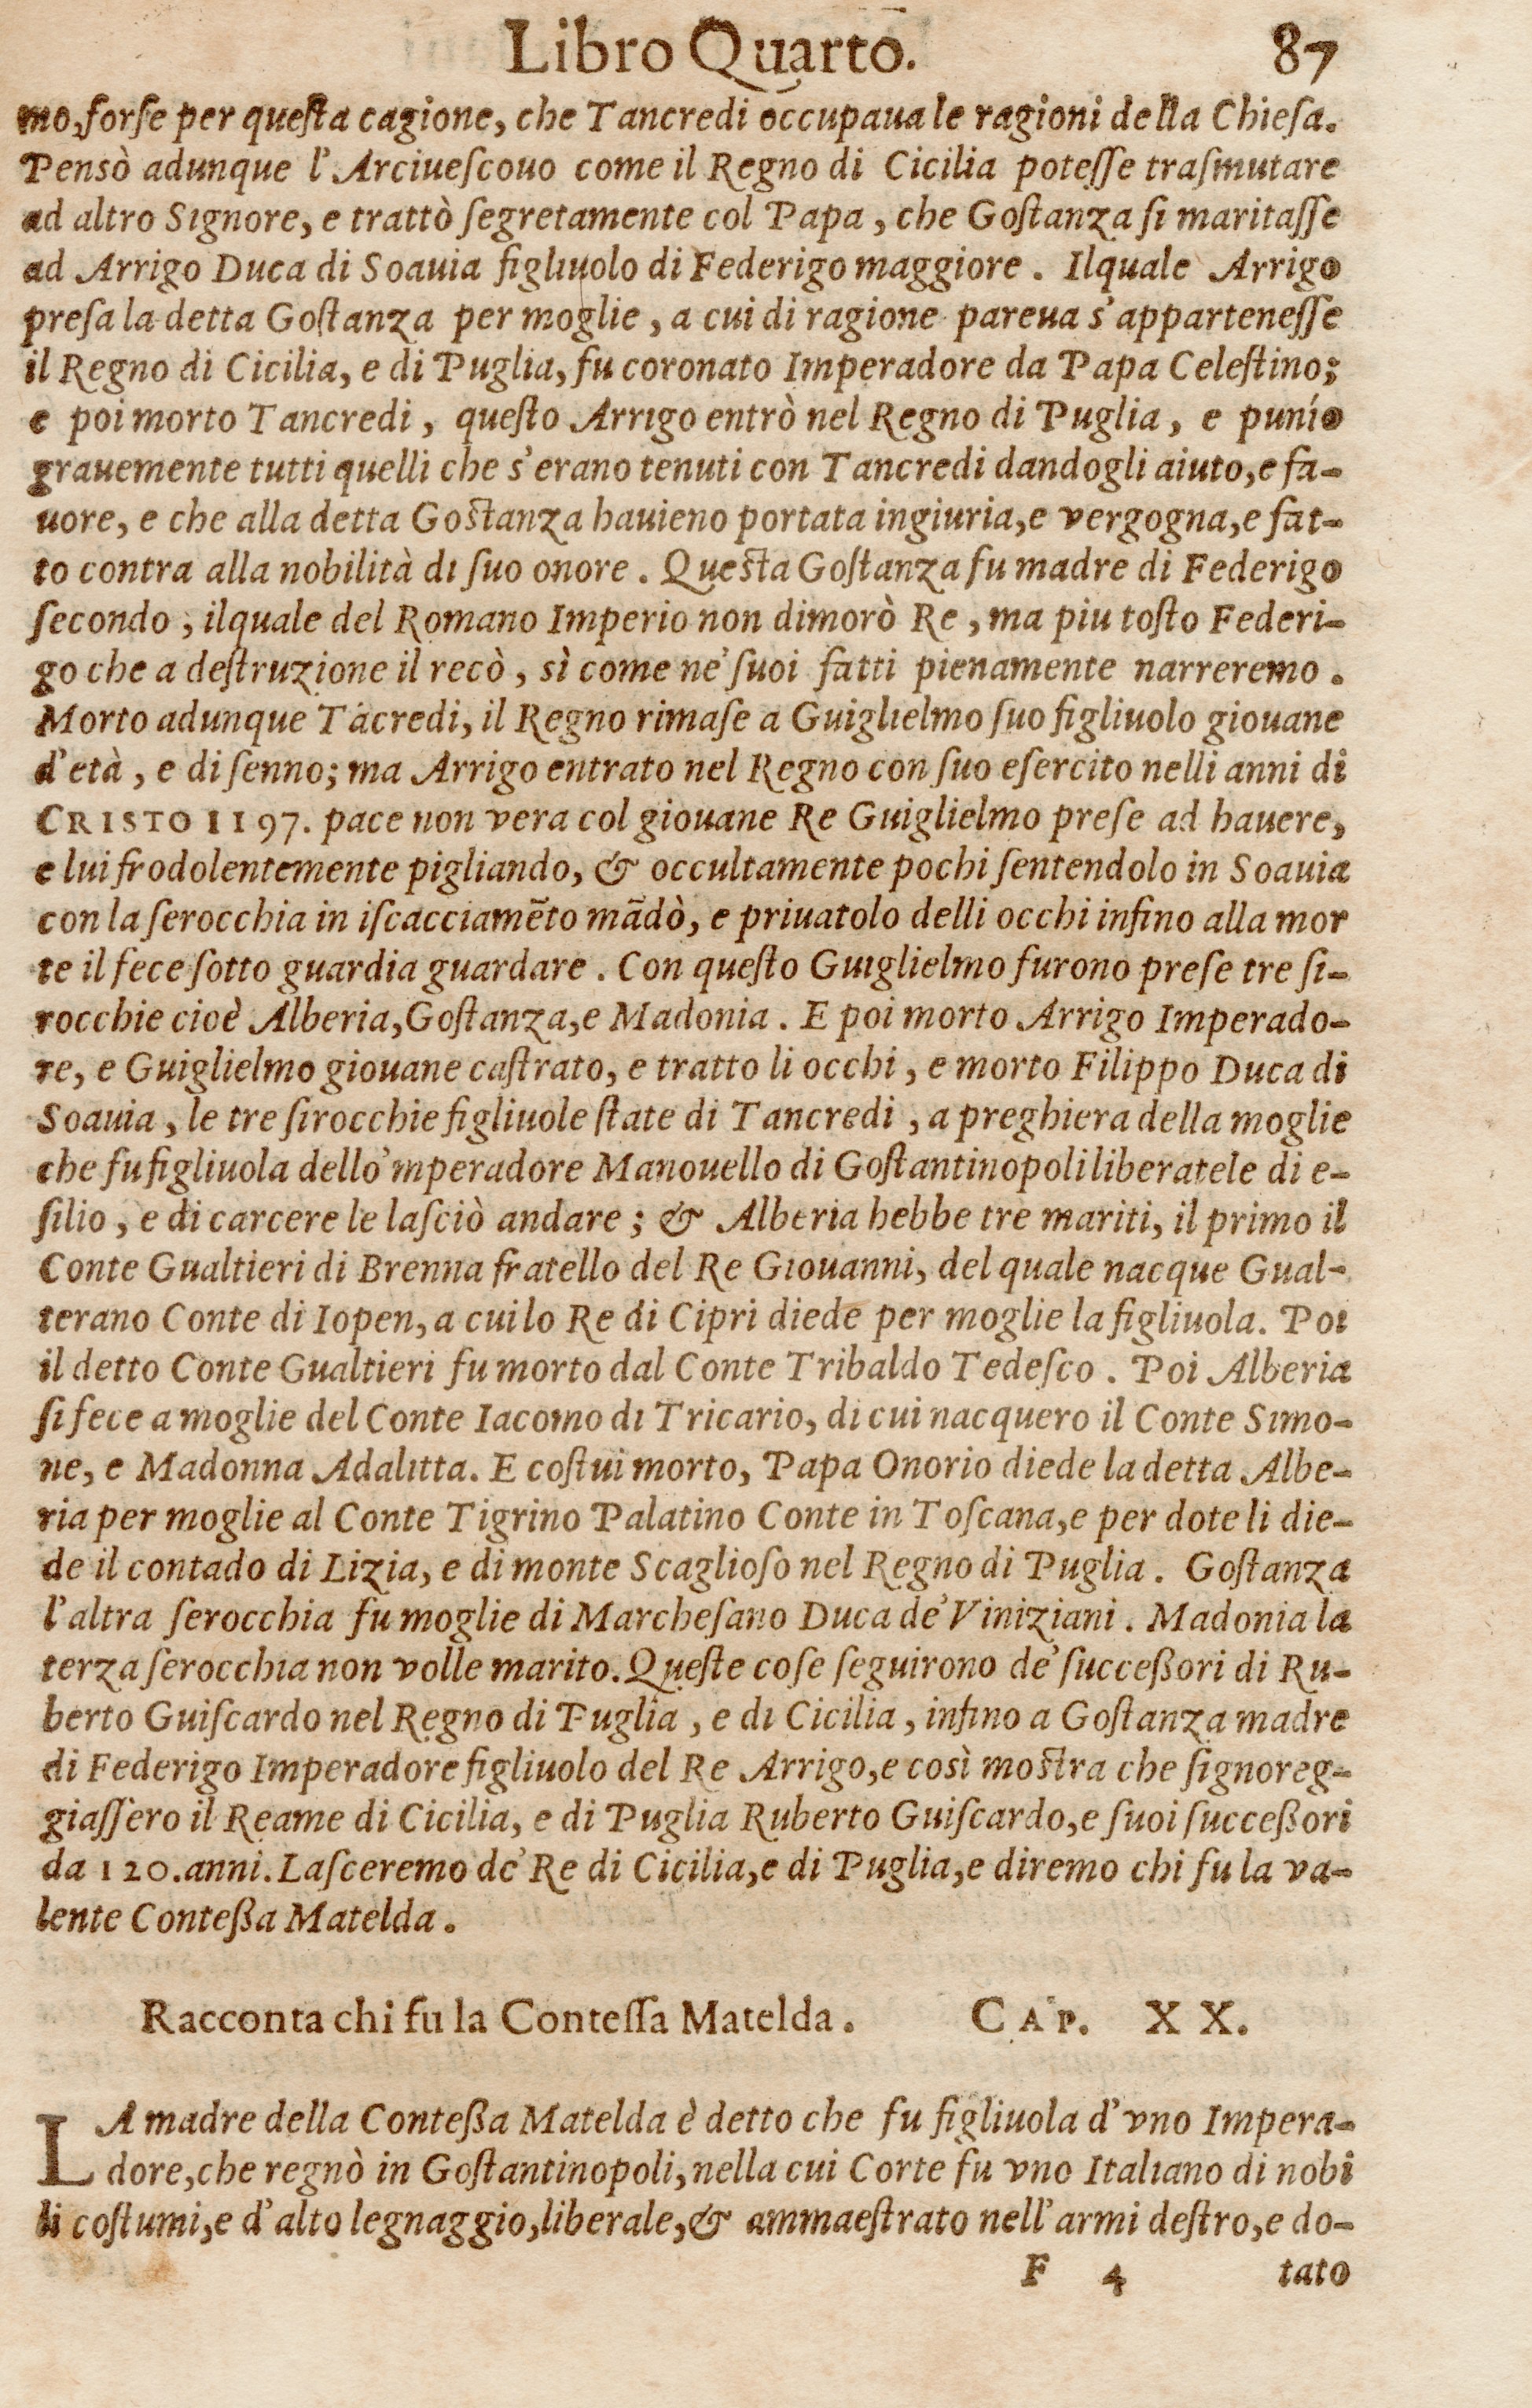 Libro Quarto. 87
mo, forſe per queſta cagione, che Tancredi occupaua le ragioni della Chieſa.
Pensò adunque l'Arciueſcouo come il Regno di Cicilia poteſſe traſmutare
ad altro Signore, e trattò ſegretamente col Papa, che Goſtanza ſi maritaſſe
ad Arrigo Duca di Soauia figliuolo di Federigo maggiore. Ilquale Arrigo
preſa la detta Goſtanza per moglie, a cui di ragione pareua s'apparteneſſe
il Regno di Cicilia, e di Puglia, fu coronato Imperadore da Papa Celeſtino;
e poi morto Tancredi, queſto Arrigo entrò nel Regno di Puglia, e punío
grauemente tutti quelli che s'erano tenuti con Tancredi dandogli aiuto, e fa-
uore, e che alla detta Goſtanza hauieno portata ingiuria, e vergogna, e fat-
to contra alla nobilità di ſuo onore. Queſta Goſtanza fu madre di Federigo
ſecondo, ilquale del Romano Imperio non dimorò Re, ma piu toſto Federi-
go che a deſtruzione il recò, sì come ne' ſuoi fatti pienamente narreremo.
Morto adunque Tácredi, il Regno rimaſe a Guiglielmo ſuo figliuolo giouane
d'età, e di ſenno; ma Arrigo entrato nel Regno con ſuo eſercito nelli anni di
CRISTO 1197. pace non vera col giouane Re Guiglielmo preſe ad hauere,
e lui frodolentemente pigliando, & occultamente pochi ſentendolo in Soauia
con la ſerocchia in iſcacciamẽto mãdò, e priuatolo delli occhi infino alla mor
te il fece ſotto guardia guardare. Con queſto Guiglielmo furono preſe tre ſi-
rocchie cioè Alberia, Goſtanza, e Madonia. E poi morto Arrigo Imperado-
re, e Guiglielmo giouane caſtrato, e tratto li occhi, e morto Filippo Duca di
Soauia, le tre ſirocchie figliuole ſtate di Tancredi, a preghiera della moglie
che fu figliuola dello'mperadore Manouello di Goſtantinopoli liberatele di e-
ſilio, e di carcere le laſciò andare; & Alberia hebbe tre mariti, il primo il
Conte Gualtieri di Brenna fratello del Re Giouanni, del quale nacque Gual-
terano Conte di Iopen, a cui lo Re di Cipri diede per moglie la figliuola. Poi
il detto Conte Gualtieri fu morto dal Conte Tribaldo Tedeſco. Poi Alberia
ſi fece a moglie del Conte Iacomo di Tricario, di cui nacquero il Conte Simo-
ne, e Madonna Adalitta. E coſtui morto, Papa Onorio diede la detta Albe-
ria per moglie al Conte Tigrino Palatino Conte in Toſcana, e per dote li die-
de il contado di Lizia, e di monte Scaglioſo nel Regno di Puglia. Goſtanza
l'altra ſerocchia fu moglie di Marcheſano Duca de' Viniziani. Madonia la
terza ſerocchia non volle marito. Queſte coſe ſeguirono de' ſucceßori di Ru-
berto Guiſcardo nel Regno di Puglia, e di Cicilia, infino a Goſtanza madre
di Federigo Imperadore figliuolo del Re Arrigo, e così moſtra che ſignoreg-
giaſſero il Reame di Cicilia, e di Puglia Ruberto Guiſcardo, e ſuoi ſucceßori
da 120. anni. Laſceremo de' Re di Cicilia, e di Puglia, e diremo chi fu la va-
lente Conteßa Matelda.
Racconta chi fu la Conteſſa Matelda. CAP. XX.
LA madre della Conteßa Matelda è detto che fu figliuola d'vno Impera-
dore, che regnò in Goſtantinopoli, nella cui Corte fu vno Italiano di nobi
li coſtumi, e d'alto legnaggio, liberale, & ammaeſtrato nell'armi deſtro, e do-
F 4 tato